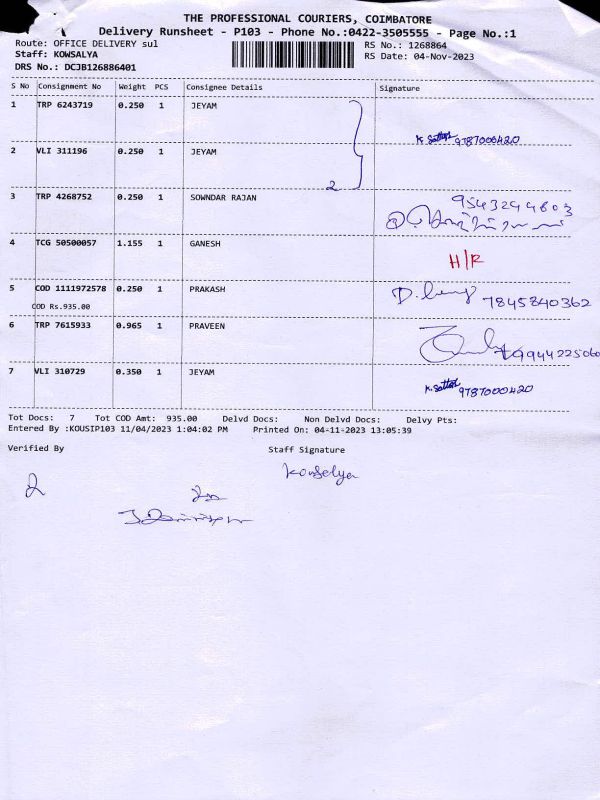 THE PROFESSIONAL COURIERS, COIMBATORE
Delivery Runsheet - P103 - Phone No.:0422-3505555 - Page No.:1
Route: OFFICE DELIVERY sul
RS No.: 1268864
Staff: KOWSALYA
RS Date: 04-Nov-2023
DRS No.: DCJB126886401
S No Consignment No Weight PCS Consignee Details Signature
1 TRP 6243719 0.250 1 JEYAM
K. Sathish 9787000420
2 VLI 311196 0.250 1 JEYAM
2
3 TRP 4268752 0.250 1 SOWNDAR RAJAN 9543244803
4 TCG 50500057 1.155 1 GANESH
H/R
5 COD 1111972578 0.250 1 PRAKASH
7845840362
COD Rs.935.00
6 TRP 7615933 0.965 1 PRAVEEN
9944225060
7 VLI 310729 0.350 1 JEYAM
K. Sathish 9787000420
Tot Docs: 7 Tot COD Amt: 935.00 Delvd Docs: Non Delvd Docs: Delvy Pts:
Entered By :KOUSIP103 11/04/2023 1:04:02 PM Printed On: 04-11-2023 13:05:39
Verified By Staff Signature
Kowselya